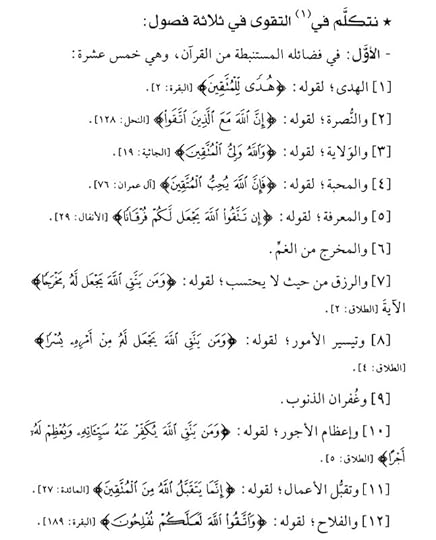 ★ نتكلَّم في(١) التقوى في ثلاثة فصول:
- الأوَّل: في فضائله المستنبطة من القرآن، وهي خمس عشرة:
[١] الهدى؛ لقوله: ﴿هُدًى لِّلْمُتَّقِينَ﴾ [البقرة: ٢].
[٢] والنُّصرة؛ لقوله: ﴿إِنَّ ٱللَّهَ مَعَ ٱلَّذِينَ ٱتَّقَواْ﴾ [النحل: ١٢٨].
[٣] والوَلاية؛ لقوله: ﴿وَٱللَّهُ وَلِيُّ ٱلْمُتَّقِينَ﴾ [الجاثية: ١٩].
[٤] والمحبة؛ لقوله: ﴿فَإِنَّ ٱللَّهَ يُحِبُّ ٱلْمُتَّقِينَ﴾ [آل عمران: ٧٦].
[٥] والمعرفة؛ لقوله: ﴿إِن تَتَّقُواْ ٱللَّهَ يَجْعَل لَّكُمْ فُرْقَانًا﴾ [الأنفال: ٢٩].
[٦] والمخرج من الغمِّ.
[٧] والرزق من حيث لا يحتسب؛ لقوله: ﴿وَمَن يَتَّقِ ٱللَّهَ يَجْعَل لَّهُۥ مَخْرَجًا﴾
الآيةَ [الطلاق: ٢].
[٨] وتيسير الأمور؛ لقوله: ﴿وَمَن يَتَّقِ ٱللَّهَ يَجْعَل لَّهُۥ مِنْ أَمْرِهِۦ يُسْرًا﴾
[الطلاق: ٤].
[٩] وغُفران الذنوب.
[١٠] وإعظام الأجور؛ لقوله: ﴿وَمَن يَتَّقِ ٱللَّهَ يُكَفِّرْ عَنْهُ سَيِّـَٔاتِهِۦ وَيُعْظِمْ لَهُۥٓ
أَجْرًا﴾ [الطلاق: ٥].
[١١] وتقبُّل الأعمال؛ لقوله: ﴿إِنَّمَا يَتَقَبَّلُ ٱللَّهُ مِنَ ٱلْمُتَّقِينَ﴾ [المائدة: ٢٧].
[١٢] والفلاح؛ لقوله: ﴿وَٱتَّقُواْ ٱللَّهَ لَعَلَّكُمْ تُفْلِحُونَ﴾ [البقرة: ١٨٩].